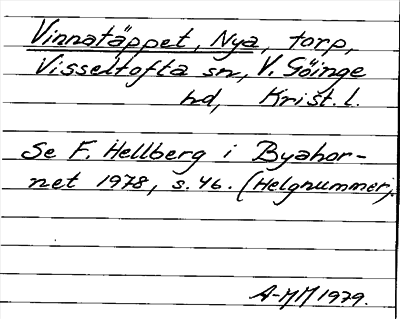 Vinnatäppet, Nya, torp,
Visseltofta sn, V. Göinge
hd, Krist. l.
Se F. Hellberg i Byahor-
net 1978, s. 46. (Helgnummer).
A-MM 1979.